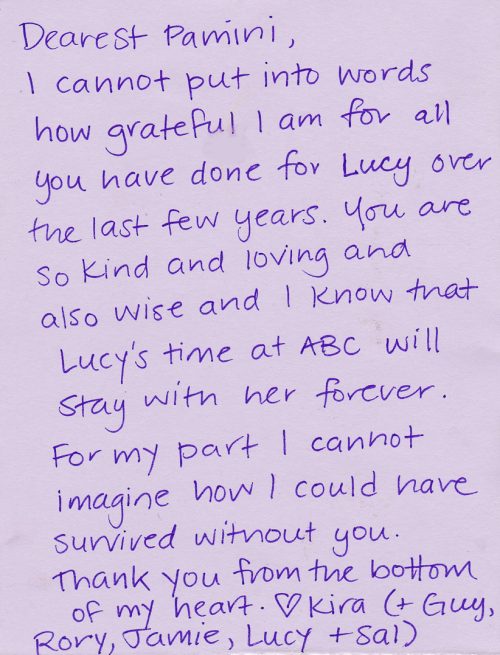 Dearest Pamini,
I cannot put into words
how grateful I am for all
you have done for Lucy over
the last few years. You are
so kind and loving and
also wise and I know that
Lucy's time at ABC will
stay with her forever.
For my part I cannot
imagine how I could have
survived without you.
Thank you from the bottom
of my heart. ♡ Kira (+ Guy,
Rory, Jamie, Lucy + Sal)